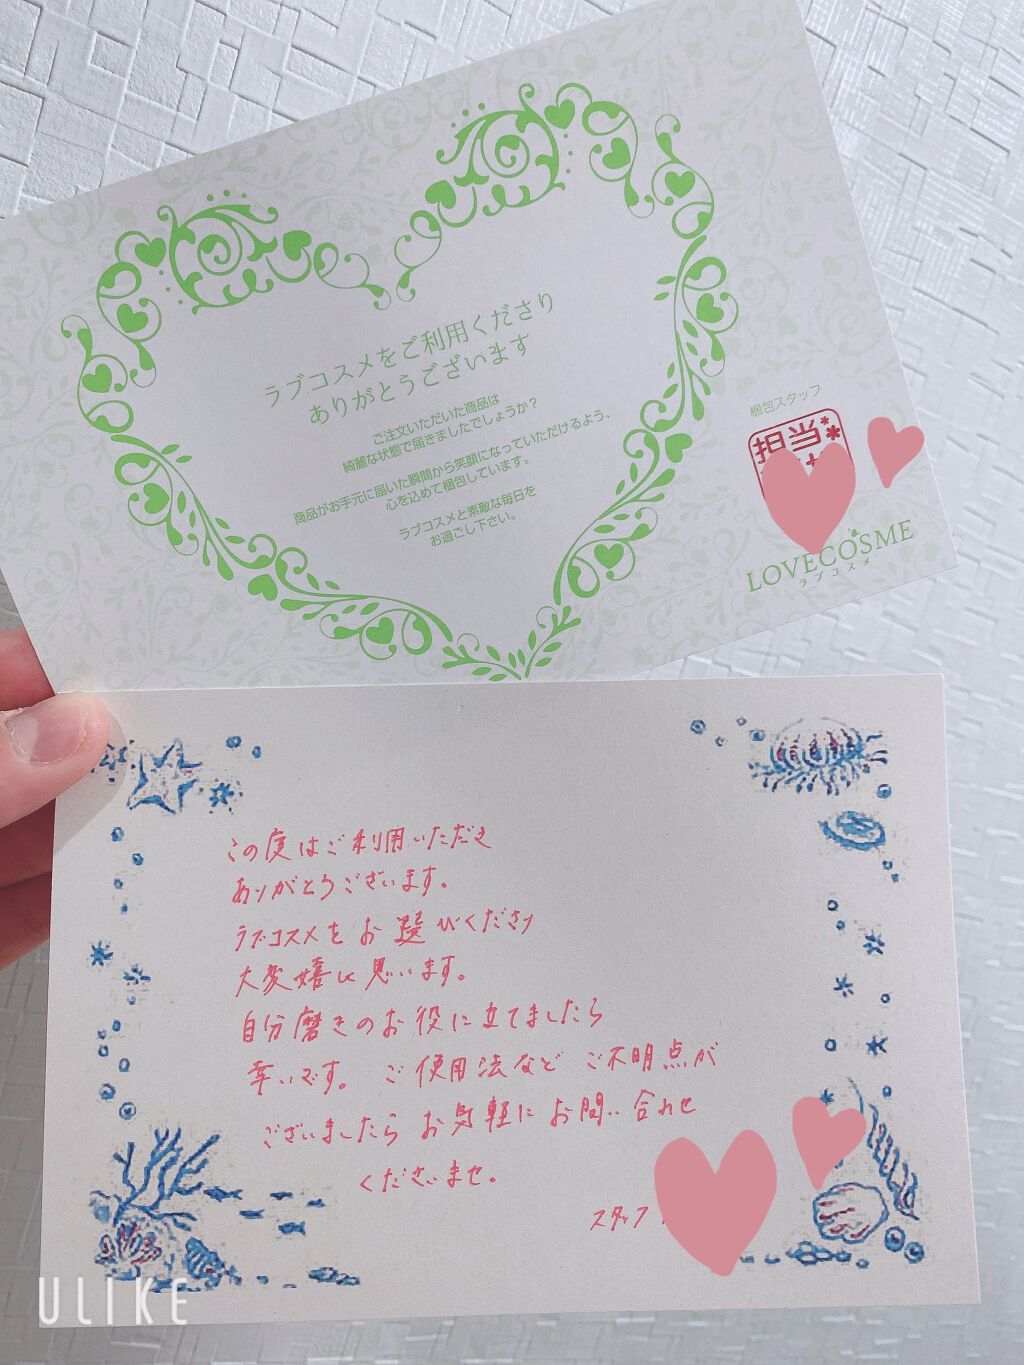 ラブコスメをご利用くださり
ありがとうございます
ご注文いただいた商品は
綺麗な状態で届きましたでしょうか？
商品がお手元に届いた瞬間から笑顔になっていただけるよう、
心を込めて梱包しています。
ラブコスメと素敵な毎日を
お過ごし下さい。
梱包スタッフ
担当
LOVECOSME
ラブコスメ
この度はご利用いただき
ありがとうございます。
ラブコスメをお選びくださり
大変嬉しく思います。
自分磨きのお役に立てましたら
幸いです。ご使用法などご不明点が
ございましたらお気軽にお問い合わせ
くださいませ。
スタッフ
ULIKE